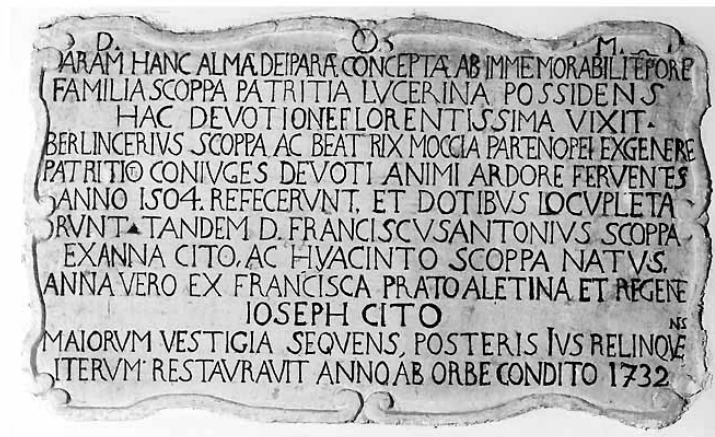 D. O. M.
ARAM HANC ALMÆ DEIPARÆ CONCEPTÆ AB IMMEMORABILI TĒPORE
FAMILIA SCOPPA PATRITIA LVCERINA POSSIDENS
HAC DEVOTIONE FLORENTISSIMA VIXIT.
BERLINCERIVS SCOPPA AC BEATRIX MOCCIA PARTENOPEI EX GENERE
PATRITIO CONIVGES DEVOTI ANIMI ARDORE FERVENTES
ANNO 1504. REFECERVNT, ET DOTIBVS LOCVPLETA
RVNT▲TANDEM D. FRANCISCVS ANTONIVS SCOPPA
EX ANNA CITO, AC HYACINTO SCOPPA NATVS,
ANNA VERO EX FRANCISCA PRATO ALETINA ET REGENE
IOSEPH CITO
MAIORVM VESTIGIA SEQVENS, POSTERIS IVS RELINQVENS
ITERVM RESTAVRAVIT ANNO AB ORBE CONDITO 1732